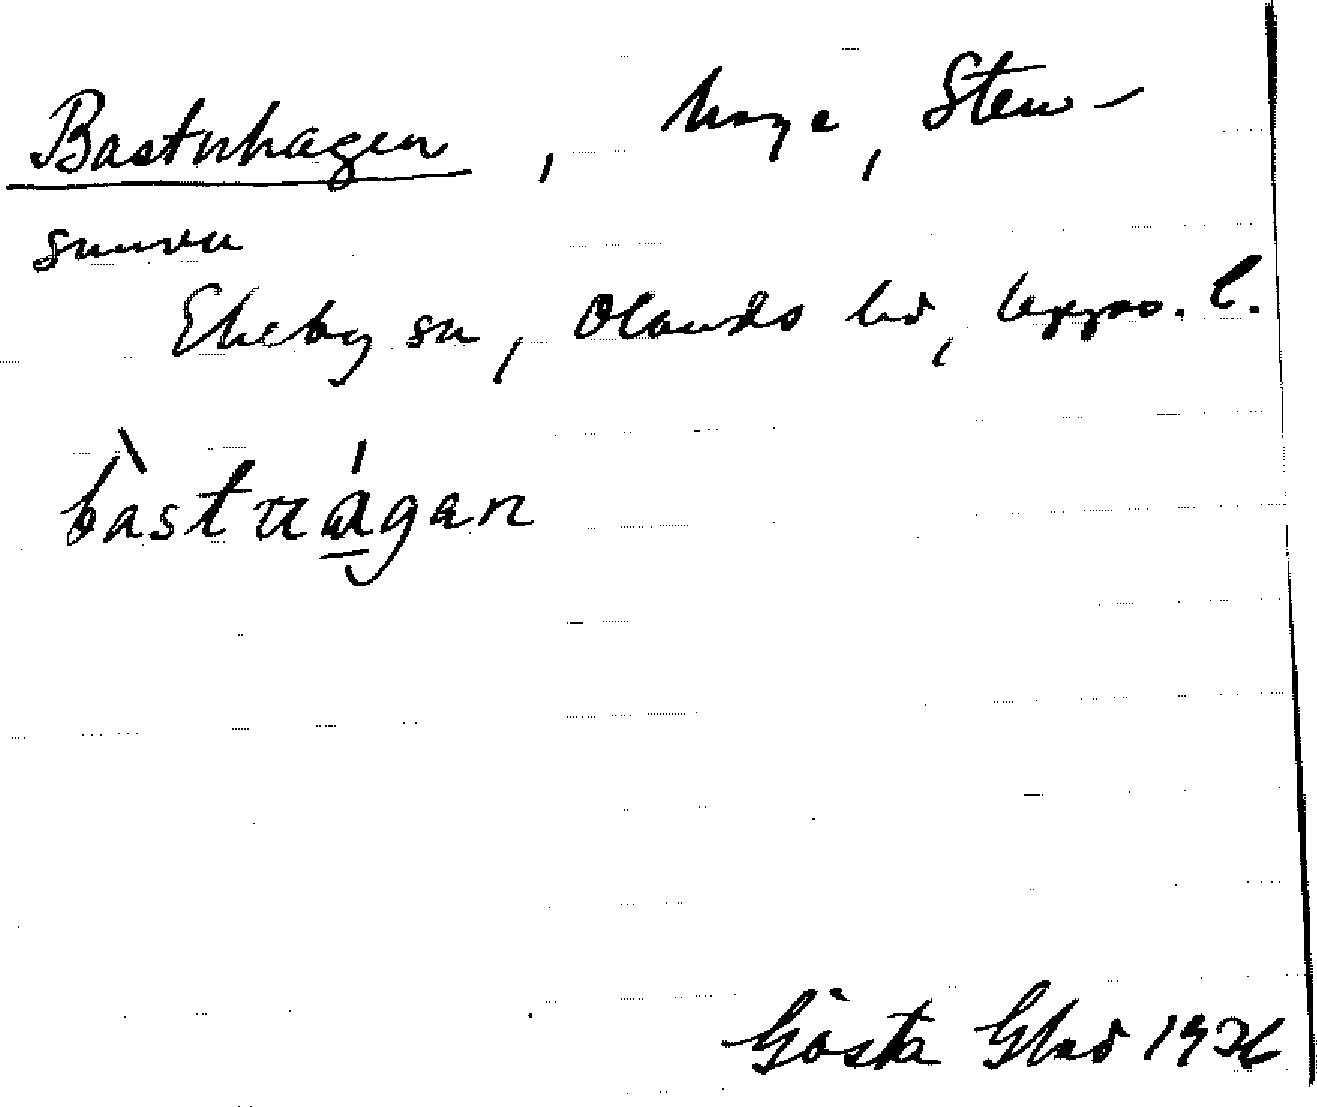 Bastuhagen, hage, Sten-
sunva
Ekeby sn, Olands hd, Upps. l.
bàstuágan
Gösta Glad 1936